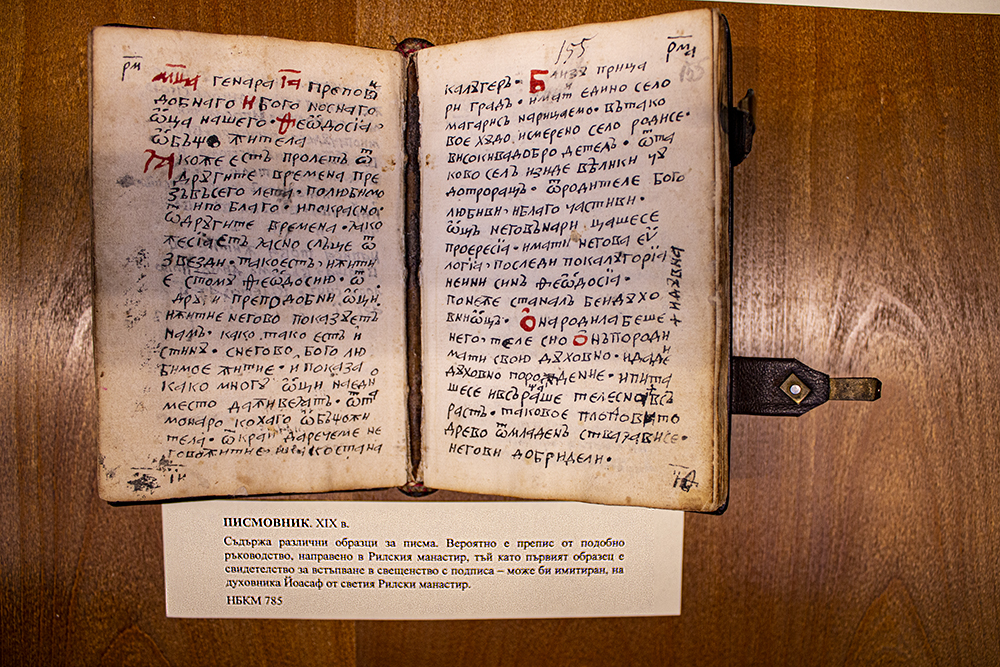 р҃м
Мⷭ҇ца генара І҃А препо
добнаго И бого носнаго
ѿца нашего · Ѳеѡдосїа ·
ѡбьщ житела
Iакоже естъ пролеть ѿ
дрꙋгите времена пре
зъвъсего лета · полюбимо
ипо благо · ипокрасно ·
ѿдрꙋгите времена · ꙗко
жесїаестъ ꙗсно слъце ѿ
звезди · такоесть · ижити
е стомꙋ Ѳеѡдосию · ѿ
дрꙋ и преподобни ѿци
ижитие негово показꙋеть
намъ · како тако есть и
стинꙋ · снегово бого лю
бимое житие · и показа
како многꙋ ѿци наедн
место даживеать · ѿта
монаро кохаго ѡбъчожи
тела · ѿкраи даречеме не
говожитие · костана
155
р҃ма
155
калꙋгеръ · Близꙋ прица
ри градъ · имат едино село
магарись нарицаемо · вътако
вое хꙋдо исмерено село родисе ·
високивадобро детель · ѿта
ково селъ изиде вѣлики чꙋ
дотворацъ · ѿродителе бого
любиви · иблаго частиви ·
ѿць неговънари цашесе
проересїа · имати негова еѵ
логїа · последи покалꙋгорїа
неини синь Ѳеѡдосїа ·
понеже станаль бендꙋхо
вниѿць · Ѻнародила беше
него · теле сно Ѻнъпороди
мати свою дꙋховно · идаде
дꙋховно порождение · ипита
шесе ивсъраше телесно
расть · таковое плоновито
древо ѿмладень
негови добридели ·
ПИСМОВНИК. XIX в.
Съдържа различни образци за писма. Вероятно е препис от подобно
ръководство, направено в Рилския манастир, тъй като първият образец е
свидетелство за встъпване в свещенство с подписа – може би имитиран, на
духовника Йоасаф от светия Рилски манастир.
НБКМ 785